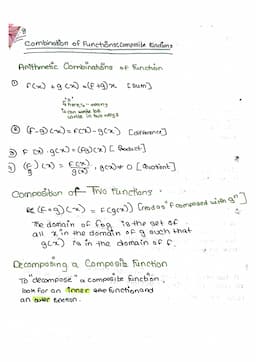 Combination of Functions: Composite Functions
Arithmetic Combinations of Function
① f(x) + g(x) = (f+g)x [Sum]
② (f-g)(x) = f(x) - g(x) [difference]
③ f(x) · g(x) = (fg)(x) [Product]
④ (f/g)(x) = f(x)/g(x), g(x) ≠ 0 [Quotient]
Composition of Two Functions -
(f∘g)(x) = f(g(x)) [read as "f composed with g"]
The domain of fog is the set of
all x in the domain of g such that
g(x) is in the domain of f.
Decomposing a Composite Function
To "decompose" a composite function,
look for an inner function and
an outer function.